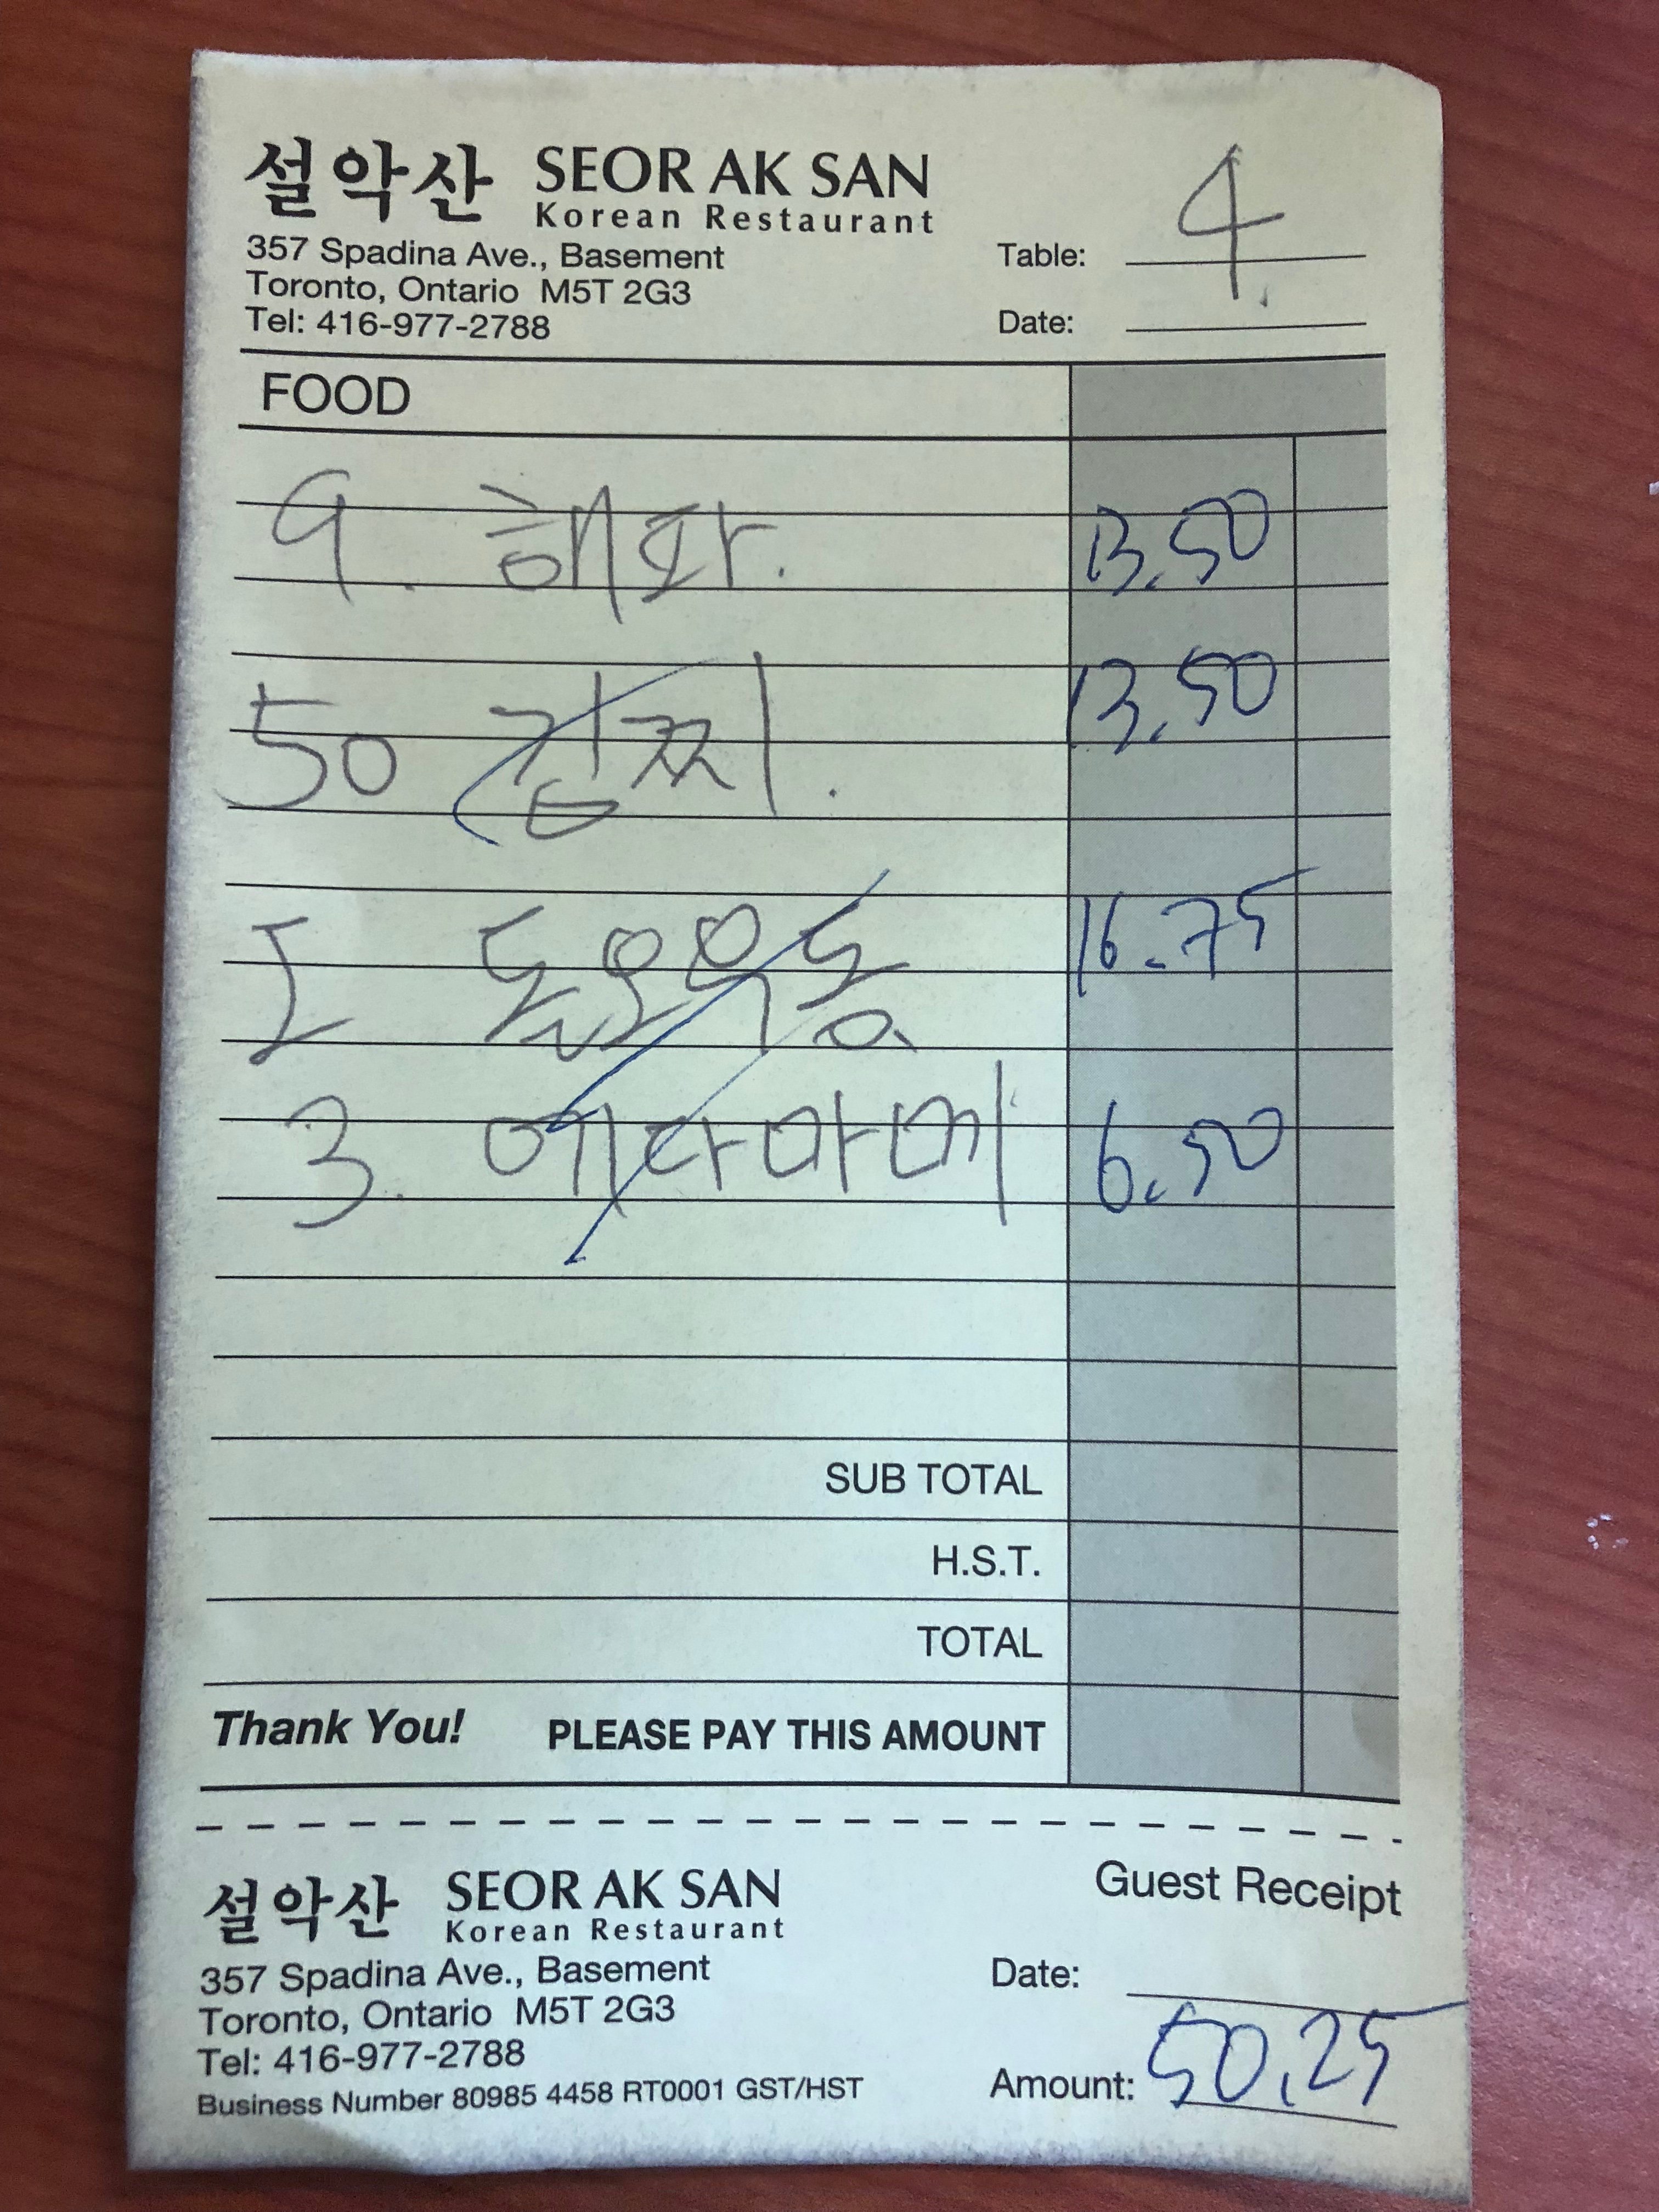 설악산 SEOR AK SAN
Korean Restaurant
357 Spadina Ave., Basement
Toronto, Ontario M5T 2G3
Tel: 416-977-2788
Table: 4.
Date:
FOOD
9. 해파. 13.50
50 김찌. 13.50
I 돌오욱동 16.75
3. 에다마메 6.50
SUB TOTAL
H.S.T.
TOTAL
Thank You! PLEASE PAY THIS AMOUNT
설악산 SEOR AK SAN
Korean Restaurant
Guest Receipt
357 Spadina Ave., Basement
Toronto, Ontario M5T 2G3
Tel: 416-977-2788
Business Number 80985 4458 RT0001 GST/HST
Date:
Amount: 50.25